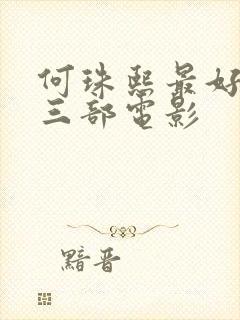 何珠熙最好
三部电影
黯晋